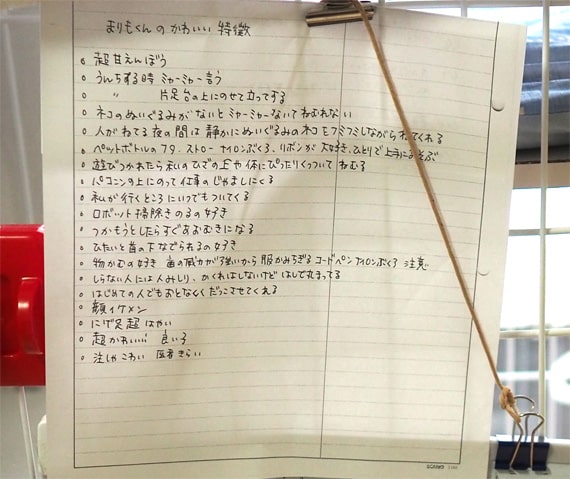 まりもくんのかわいい特徴
○ 超甘えんぼう
○ うんちする時 ミャーミャー言う
○ 〃 片足台の上にのせて立ってする
○ ネコのぬいぐるみがないとミャーミャーないてねむれない
○ 人がねてる夜の間は静かにぬいぐるみのネコをフミフミしながらねてくれる
○ ペットボトルのフタ、ストロー ナイロンぶくろ、リボンが大好き、ひとりで上手にあそぶ
○ 遊びつかれたら私のひざの上や体にぴったりくっついてねむる
○ パコソンの上にのって仕事のじゃましにくる
○ 私が行くところにいつでもついてくる
○ ロボット掃除きのるの好き
○ つかもうとしたらすぐあおむきになる
○ ひたいと首の下なでられるの好き
○ 物かむの好き 歯の威力が強いから服かみちぎる コードペンナイロンぶくろ 注意
○ しらない人には人みしり、かくれはしないけどはしで丸まってる
○ はじめての人でもおとなしくだっこさせてくれる
○ 顔イケメン
○ にげ足超はやい
○ 超かわいい 良い子
○ 注しゃこわい 医者きらい